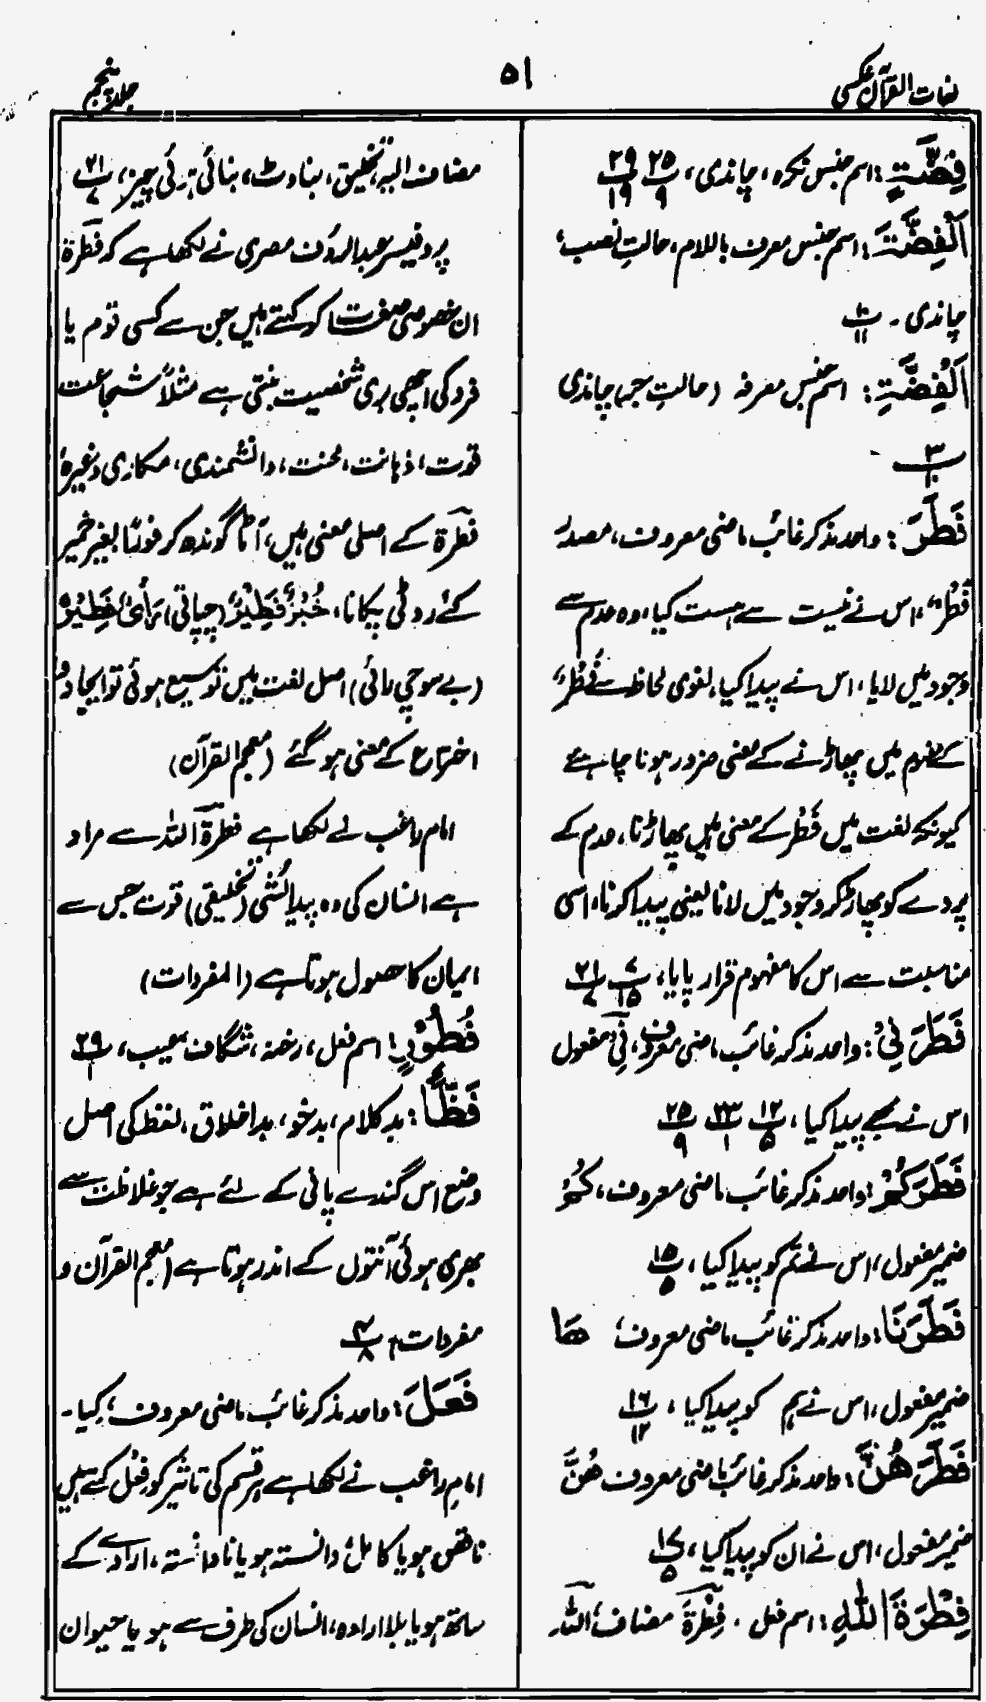 لغات القرآن عکسی
۵۱
جلد پنجم
فِضَّةٍ: اسم جنس نکرہ، چاندی، پ۲۵/۹ پ۲۹/۱۹
اَلْفِضَّةَ: اسم جنس معرف باللام، حالتِ نصب،
چاندی۔ پ۱۰/۱۱
اَلْفِضَّةِ: اسم جنس معرفہ (حالتِ جر) چاندی
پ۳/۱۰
فَطَرَ: واحد مذکر غائب ماضی معروف، مصدر
فَطْرٌ، اس نے نیست سے ہست کیا، وہ عدم سے
وجود میں لایا، اس نے پیدا کیا، لغوی لحاظ سے فَطْرٌ
کے مفہوم میں پھاڑنے کے معنی ضرور ہونا چاہئے
کیونکہ لغت میں فَطْر کے معنی ہیں پھاڑنا، عدم کے
پردے کو پھاڑ کر وجود میں لانا یعنی پیدا کرنا، اسی
مناسبت سے اس کا مفہوم قرار پایا، پ۷/۱۵ پ۲۱/۷
فَطَرَنِیْ: واحد مذکر غائب ماضی معروف، نِیْ مفعول
اس نے مجھے پیدا کیا، پ۱۲/۵ پ۲۳/۱ پ۲۵/۹
فَطَرَكُمْ: واحد مذکر غائب ماضی معروف، كُمْ
ضمیر مفعول، اس نے تم کو پیدا کیا، پ۱۵/۵
فَطَرَنَا: واحد مذکر غائب ماضی معروف، ھَا
ضمیر مفعول، اس نے ہم کو پیدا کیا، پ۱۶/۱۲
فَطَرَهُنَّ: واحد مذکر غائب ماضی معروف هُنَّ
ضمیر مفعول، اس نے ان کو پیدا کیا، پ۱۷/۵
فِطْرَةَ اللّٰهِ: اسم فعل۔ فِطْرَةَ مضاف، اللّٰہ
مضاف الیہ، تخلیق، بناوٹ، بنائی ہوئی چیز، پ۲۱/۷
پروفیسر عبدالرؤف مصری نے لکھا ہے کہ فطرۃ
ان خصوصی صفت کو کہتے ہیں جن سے کسی قوم یا
فرد کی اچھی بری شخصیت بنتی ہے مثلاً شجاعت
قوت، ذہانت، محنت، دانشمندی، مکاری وغیرہ
فطرۃ کے اصلی معنی ہیں، آٹا گوندھ کر فوراً بغیر خمیر
کئے روٹی پکانا، خُبْزٌ فَطِیْرٌ (چپاتی) رَأْیٌ فَطِیْرٌ
(بے سوچی رائی) اصل لغت میں توسیع ہوئی تو ایجاد و
اختراع کے معنی ہو گئے (معجم القرآن)
امام راغب نے لکھا ہے فطرۃ اللّٰہ سے مراد
ہے انسان کی وہ پیدائشی (تخلیقی) قوت جس سے
ایمان کا حصول ہوتا ہے (المفردات)
فُطُوْرٍ: اسم فعل، رخنہ، شگاف، عیب، پ۲۹/۱
فَظًّا: بد کلام، بدخو، بد اخلاق، لفظ کی اصل
وضع اس گندے پانی کے لئے ہے جو غلاظت سے
بھری ہوئی آنتوں کے اندر ہوتا ہے (معجم القرآن و
مفردات) پ۴/۸
فَعَلَ: واحد مذکر غائب ماضی معروف، کیا۔
امام راغب نے لکھا ہے ہر قسم کی تاثیر کو فعل کہتے ہیں
ناقص ہو یا کامل دانستہ ہو یا نادانستہ، ارادے کے
ساتھ ہو یا بلا ارادہ، انسان کی طرف سے ہو یا حیوان